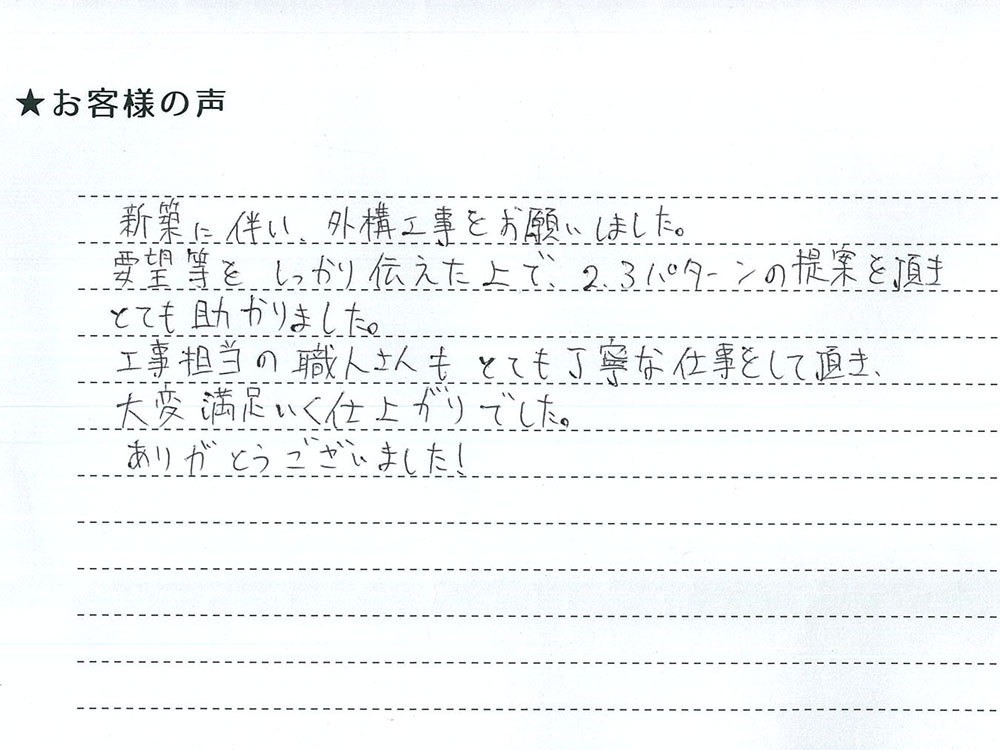 ★お客様の声
新築に伴い、外構工事をお願いしました。
要望等をしっかり伝えた上で、2.3パターンの提案を頂き
とても助かりました。
工事担当の職人さんもとても丁寧な仕事をして頂き、
大変満足いく仕上がりでした。
ありがとうございました!